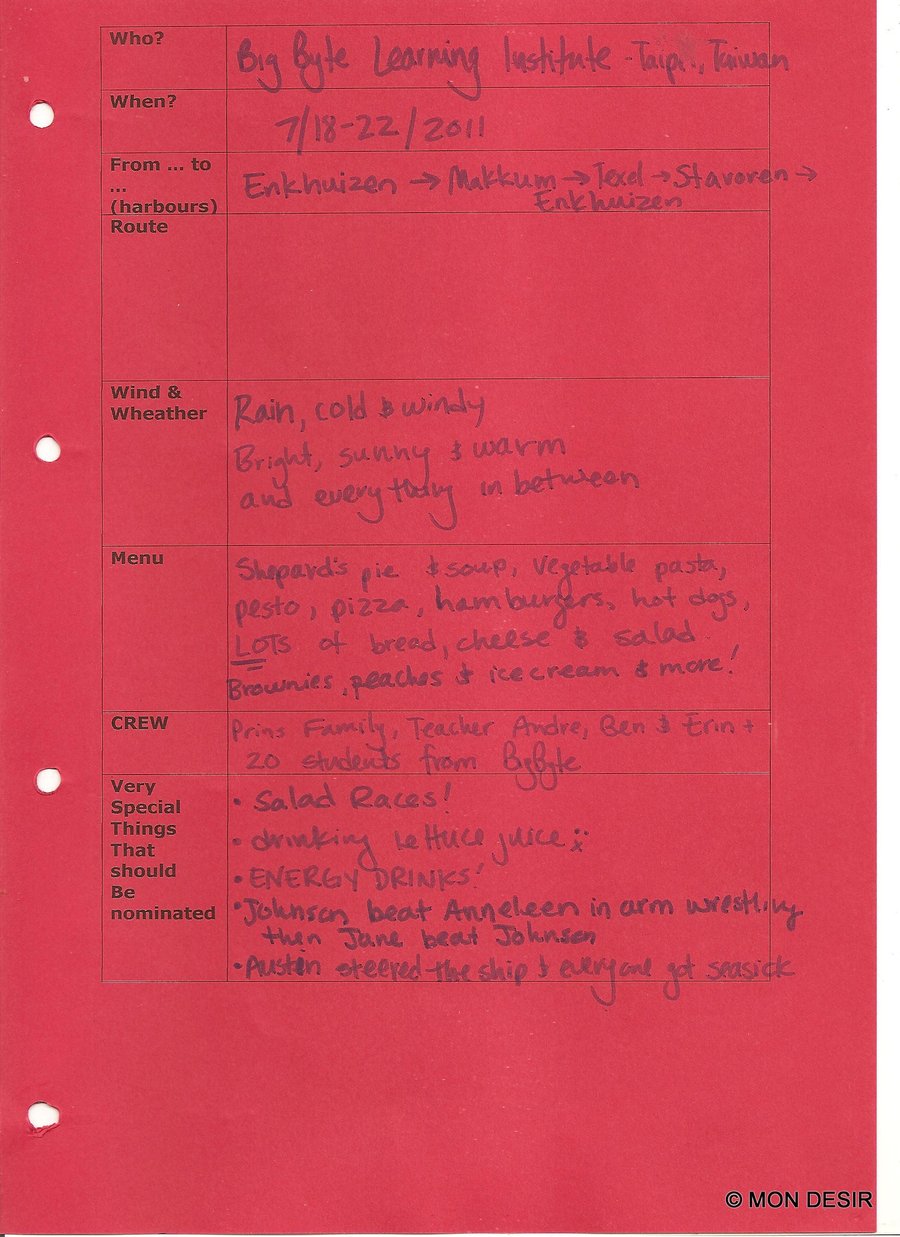 Who?
Big Byte Learning Institute - Taipi, Taiwan
When?
7/18-22/2011
From ... to
...
(harbours)
Enkhuizen → Makkum → Texel → Stavoren →
Enkhuizen
Route
Wind &
Wheather
Rain, cold & windy
Bright, sunny & warm
and everything in between
Menu
Shepard's pie & soup, vegetable pasta,
pesto, pizza, hamburgers, hot dogs,
LOTS of bread, cheese & salad
Brownies, peaches & icecream & more!
CREW
Prins Family, Teacher Andre, Ben & Erin +
20 students from BigByte
Very
Special
Things
That
should
Be
nominated
• Salad Races!
• drinking lettuce juice
• ENERGY DRINKS!
• Johnson beat Anneleen in arm wrestling
then Jane beat Johnson
• Austin steered the ship & everyone got seasick
© MON DESIR